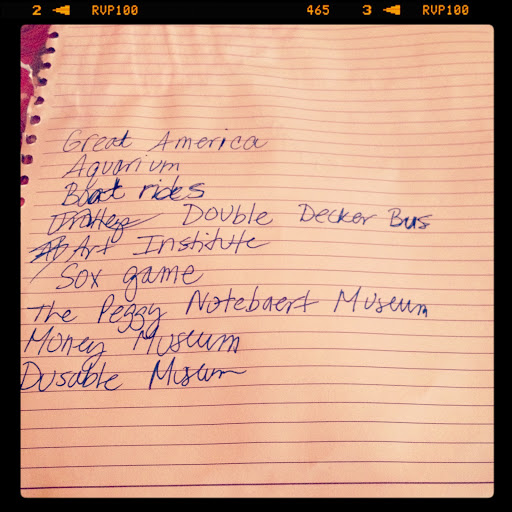 2 RVP100 465 3 RVP100
Great America
Aquarium
Boat rides
Double Decker Bus
Art Institute
Sox game
The Peggy Notebaert Museum
Money Museum
Dusable Museum